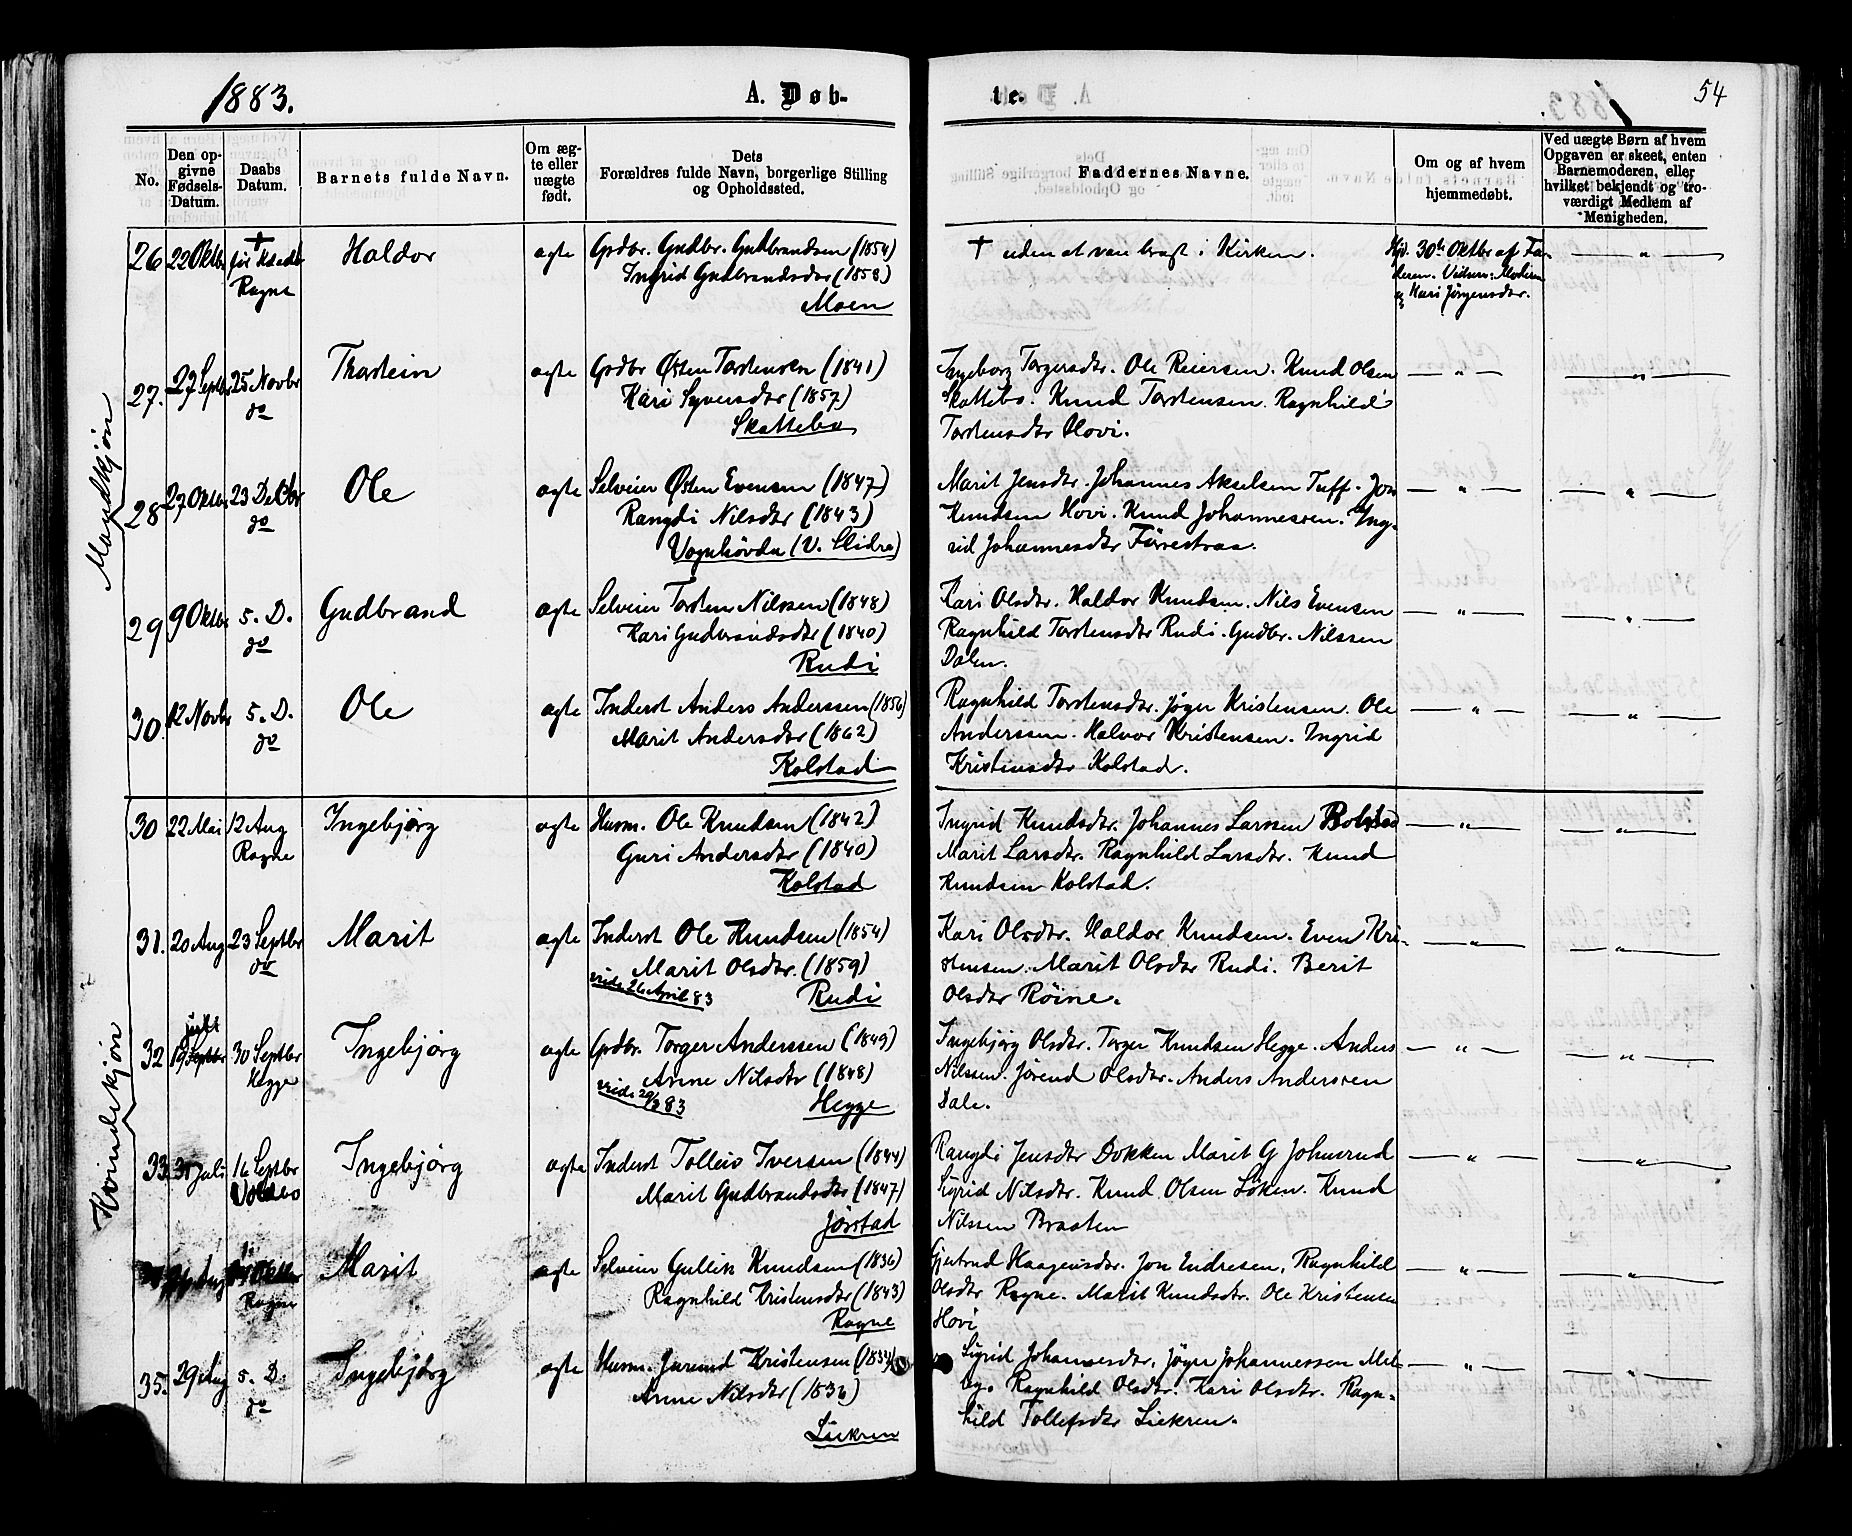 1883.
A. Døb-
te.
54
No.
Den op-
givne
Fødsels-
Datum.
Daabs
Datum.
Barnets fulde Navn.
Om æg-
te eller
uægte
født.
Dets
Forældres fulde Navn, borgerlige Stilling
og Opholdssted.
Faddernes Navne.
Om og af hvem
hjemmedøbt.
Ved uægte Børn af hvem
Opgaven er skeet, enten
Barnemoderen, eller
hvilket bekjendt og tro-
værdigt Medlem af
Menigheden.
Mandkjøn
26 22 Oktbr † før
Rogne
Haldor
ægte
Grdbr. Gudbr. Gudbrandsen (1854)
Ingrid Gudbrandsdtr (1858)
Moen
† uden at være bragt i Kirken.
Hjd. 30te Oktbr af Fa-
deren. Vidner: Moderen
og Kari Jörgensdtr.
27. 27 Septbr 25 Novbr
do
Thorstein
ægte
Grdbr Østen Torstensen (1841)
Kari Syversdtr (1857)
Skattebo
Ingeborg Torgersdtr. Ole Reiersen. Knud Olsen
Skattebo. Knud Torstensen. Ragnhild
Torstensdtr Hovi.
28 27 Oktbr 23 Decbr
do
Ole
ægte
Selveier Østen Evensen (1847)
Rangdi Nilsdtr (1843)
Vognhövda (V. Slidre)
Marit Jensdtr. Johannes Akselsen Tuff. Jon
Knudsen Hovi. Knud Johannessen. Ing-
rid Johannesdtr Förrestraa.
29 9 Oktbr 5. D.
do
Gudbrand
ægte
Selveier Torsten Nilssen (1848)
Kari Gudbrandsdtr (1840)
Rudi
Kari Olsdtr. Haldor Knudsen. Nils Evensen
Ragnhild Torstensdtr Rudi. Gudbr. Nilssen
Dalen.
30. 12 Novbr 5. D.
do
Ole
ægte
Inderst Anders Anderssen (1856)
Marit Andersdtr (1862)
Kolstad
Ragnhild Torstensdtr. Jöger Kristensen. Ole
Anderssen. Halvor Kristensen. Ingrid
Kristensdtr Kolstad.
Kvindekjøn
30 22 Mai 12 Aug
Rogne
Ingebjörg
ægte
Husm. Ole Knudsen (1842)
Guri Andersdtr (1840)
Kolstad
Ingrid Knudsdtr. Johannes Larssen Bolstad
Marit Larsdtr. Ragnhild Larsdtr. Knud
Knudsen Kolstad.
31. 20 Aug 23 Septbr
do
Marit
ægte
Inderst Ole Knudsen (1854)
Marit Olsdtr. (1859)
viede 26 April 83 Rudi
Kari Olsdtr. Haldor Knudsen. Even Kri-
stensen. Marit Olsdtr Rudi. Berit
Olsdtr Röine.
32 19 30 Septbr
Hegge
Ingebjörg
ægte
Grdbr. Torger Anderssen (1849)
Anne Nilsdtr (1848)
83 Hegge
Ingebjörg Olsdtr. Torger Knudsen Hegge. Anders
Nilssen. Jörend Olsdtr. Anders Anderssen
Dale.
33. 31 Juli 16 Septbr
Volbo
Ingebjörg
ægte
Inderst Tolleiv Iversen (1844)
Marit Gudbrandsdtr (1847)
Jörstad
Rangdi Jensdtr Dokken Marit G Johnsrud
Sigrid Nilsdtr. Knud Olsen Löken. Knud
Nilssen Braaten
Aug Oktbr
Rogne
Marit
ægte
Selveier Gullik Knudsen (1836)
Ragnhild Kristensdtr (1843)
Rogne
Gjertrud Haagensdtr. Jon Endresen, Ragnhild
Olsdtr Rogne. Marit Knudsdtr. Ole Kristensen
Hovi
35. 29 Aug 5. D.
do
Ingebjörg
ægte
Husm. Jørund Kristensen
Anne Nilsdtr (1836)
Liekren
Sigrid Johannesdtr. Jöger Johannessen
Ragnhild Olsdtr. Kari Olsdtr. Ragn-
hild Tollefsdtr Liekren.